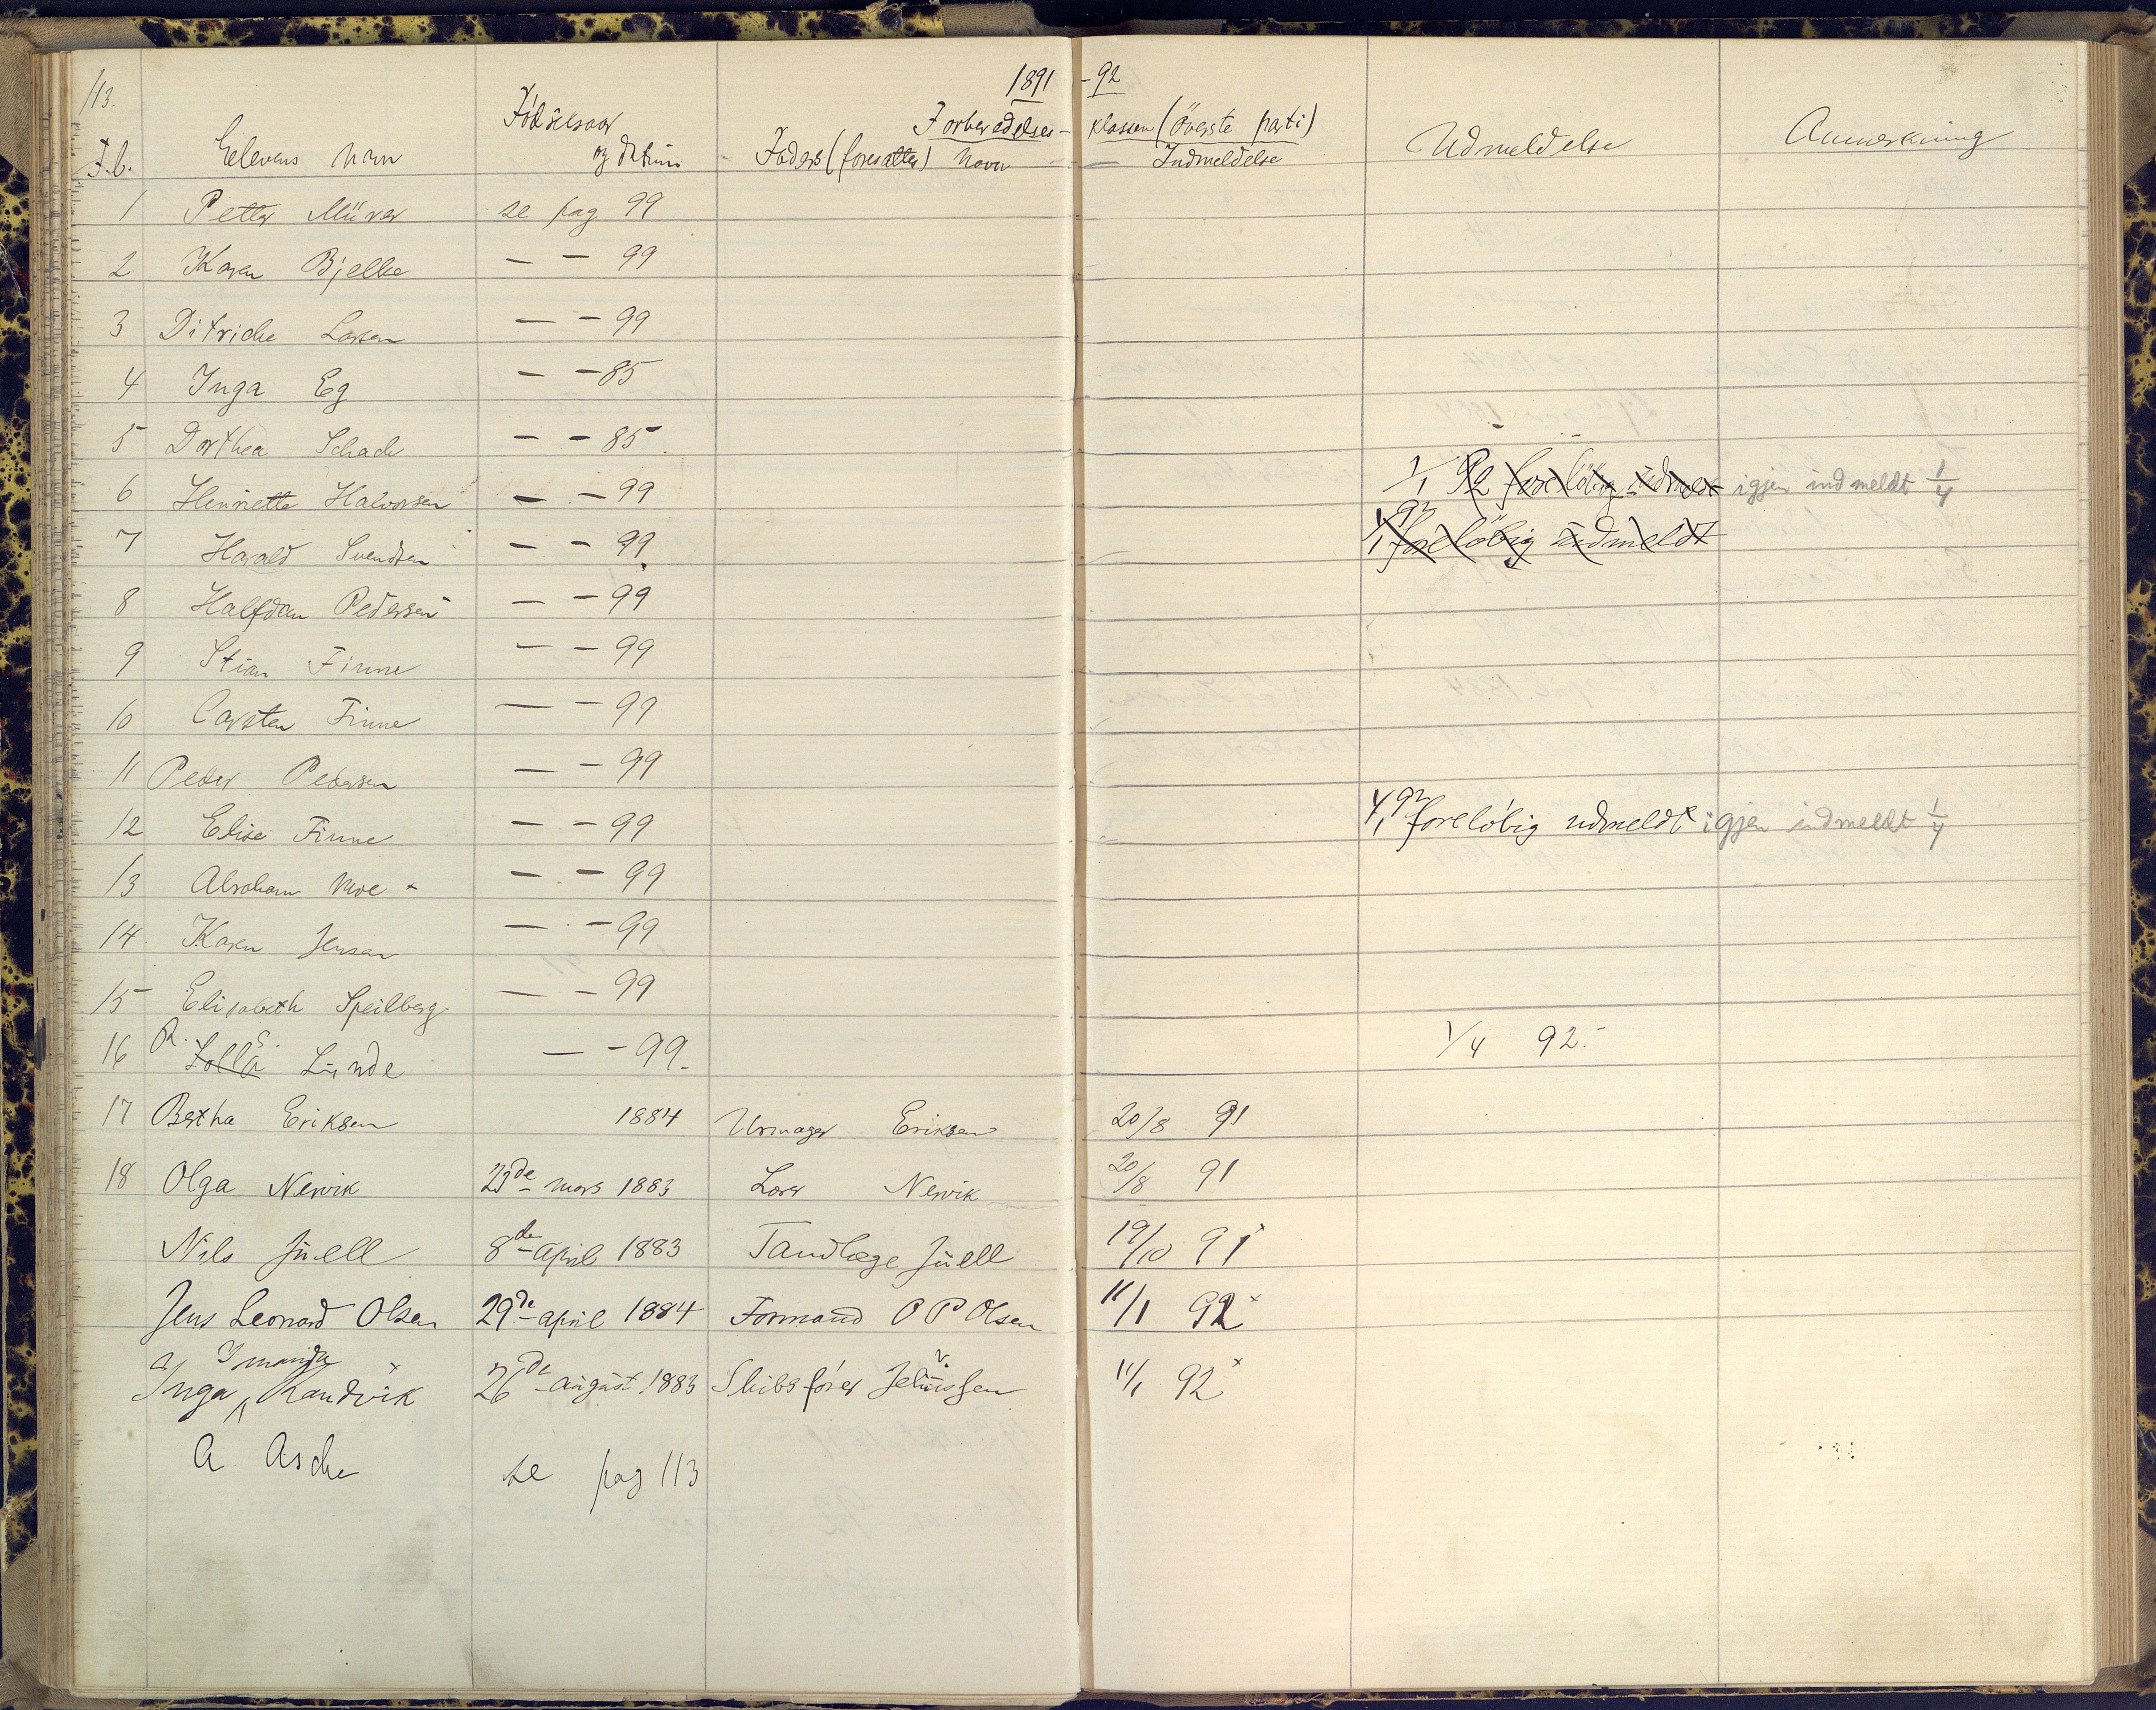 113.
1891 - 92
Forberedelses - klassen (överste parti)
F.b. Elevens navn Födselsaar og datum Faders (foresattes) navn Indmeldelse Udmeldelse Anmerkning
1 Petter Mürer se pag 99
2 Karen Bjelke — — 99
3 Ditriche Larsen — — 99
4 Inga Eg — — 85
5 Dorthea Schack — — 85.
6 Henriette Halvorsen — — 99 1/1 92 foreløbig üdmeldt igjen indmeldt 1/4
7 Harald Svendsen — — 99 1/1 92 foreløbig üdmeldt
8 Halfdan Pedersen — — 99
9 Stian Finne — — 99
10 Carsten Finne — — 99
11 Peder Pedersen — — 99
12 Elise Finne — — 99 1/1 92 foreløbig udmeldt igjen indmeldt 1/4
13 Abraham Moe — — 99
14 Karen Jensen — — 99
15 Elisabeth Speilberg — — 99
16 R. S. Lolla Lünde — — 99. 1/4 92.
17 Bertha Eriksen 1884 Urmager Eriksen 20/8 91
18 Olga Nervik 23de mars 1883 Lærer Nervik 20/8 91
Nils Jüell 8de april 1883 Tandlæge Jüell 19/10 91
Jens Leonard Olsen 29de april 1884 Formand O P Olsen 11/1 92
Inga Randvik 26de august 1883 Skibsfører 11/1 92
A Asche se pag 113